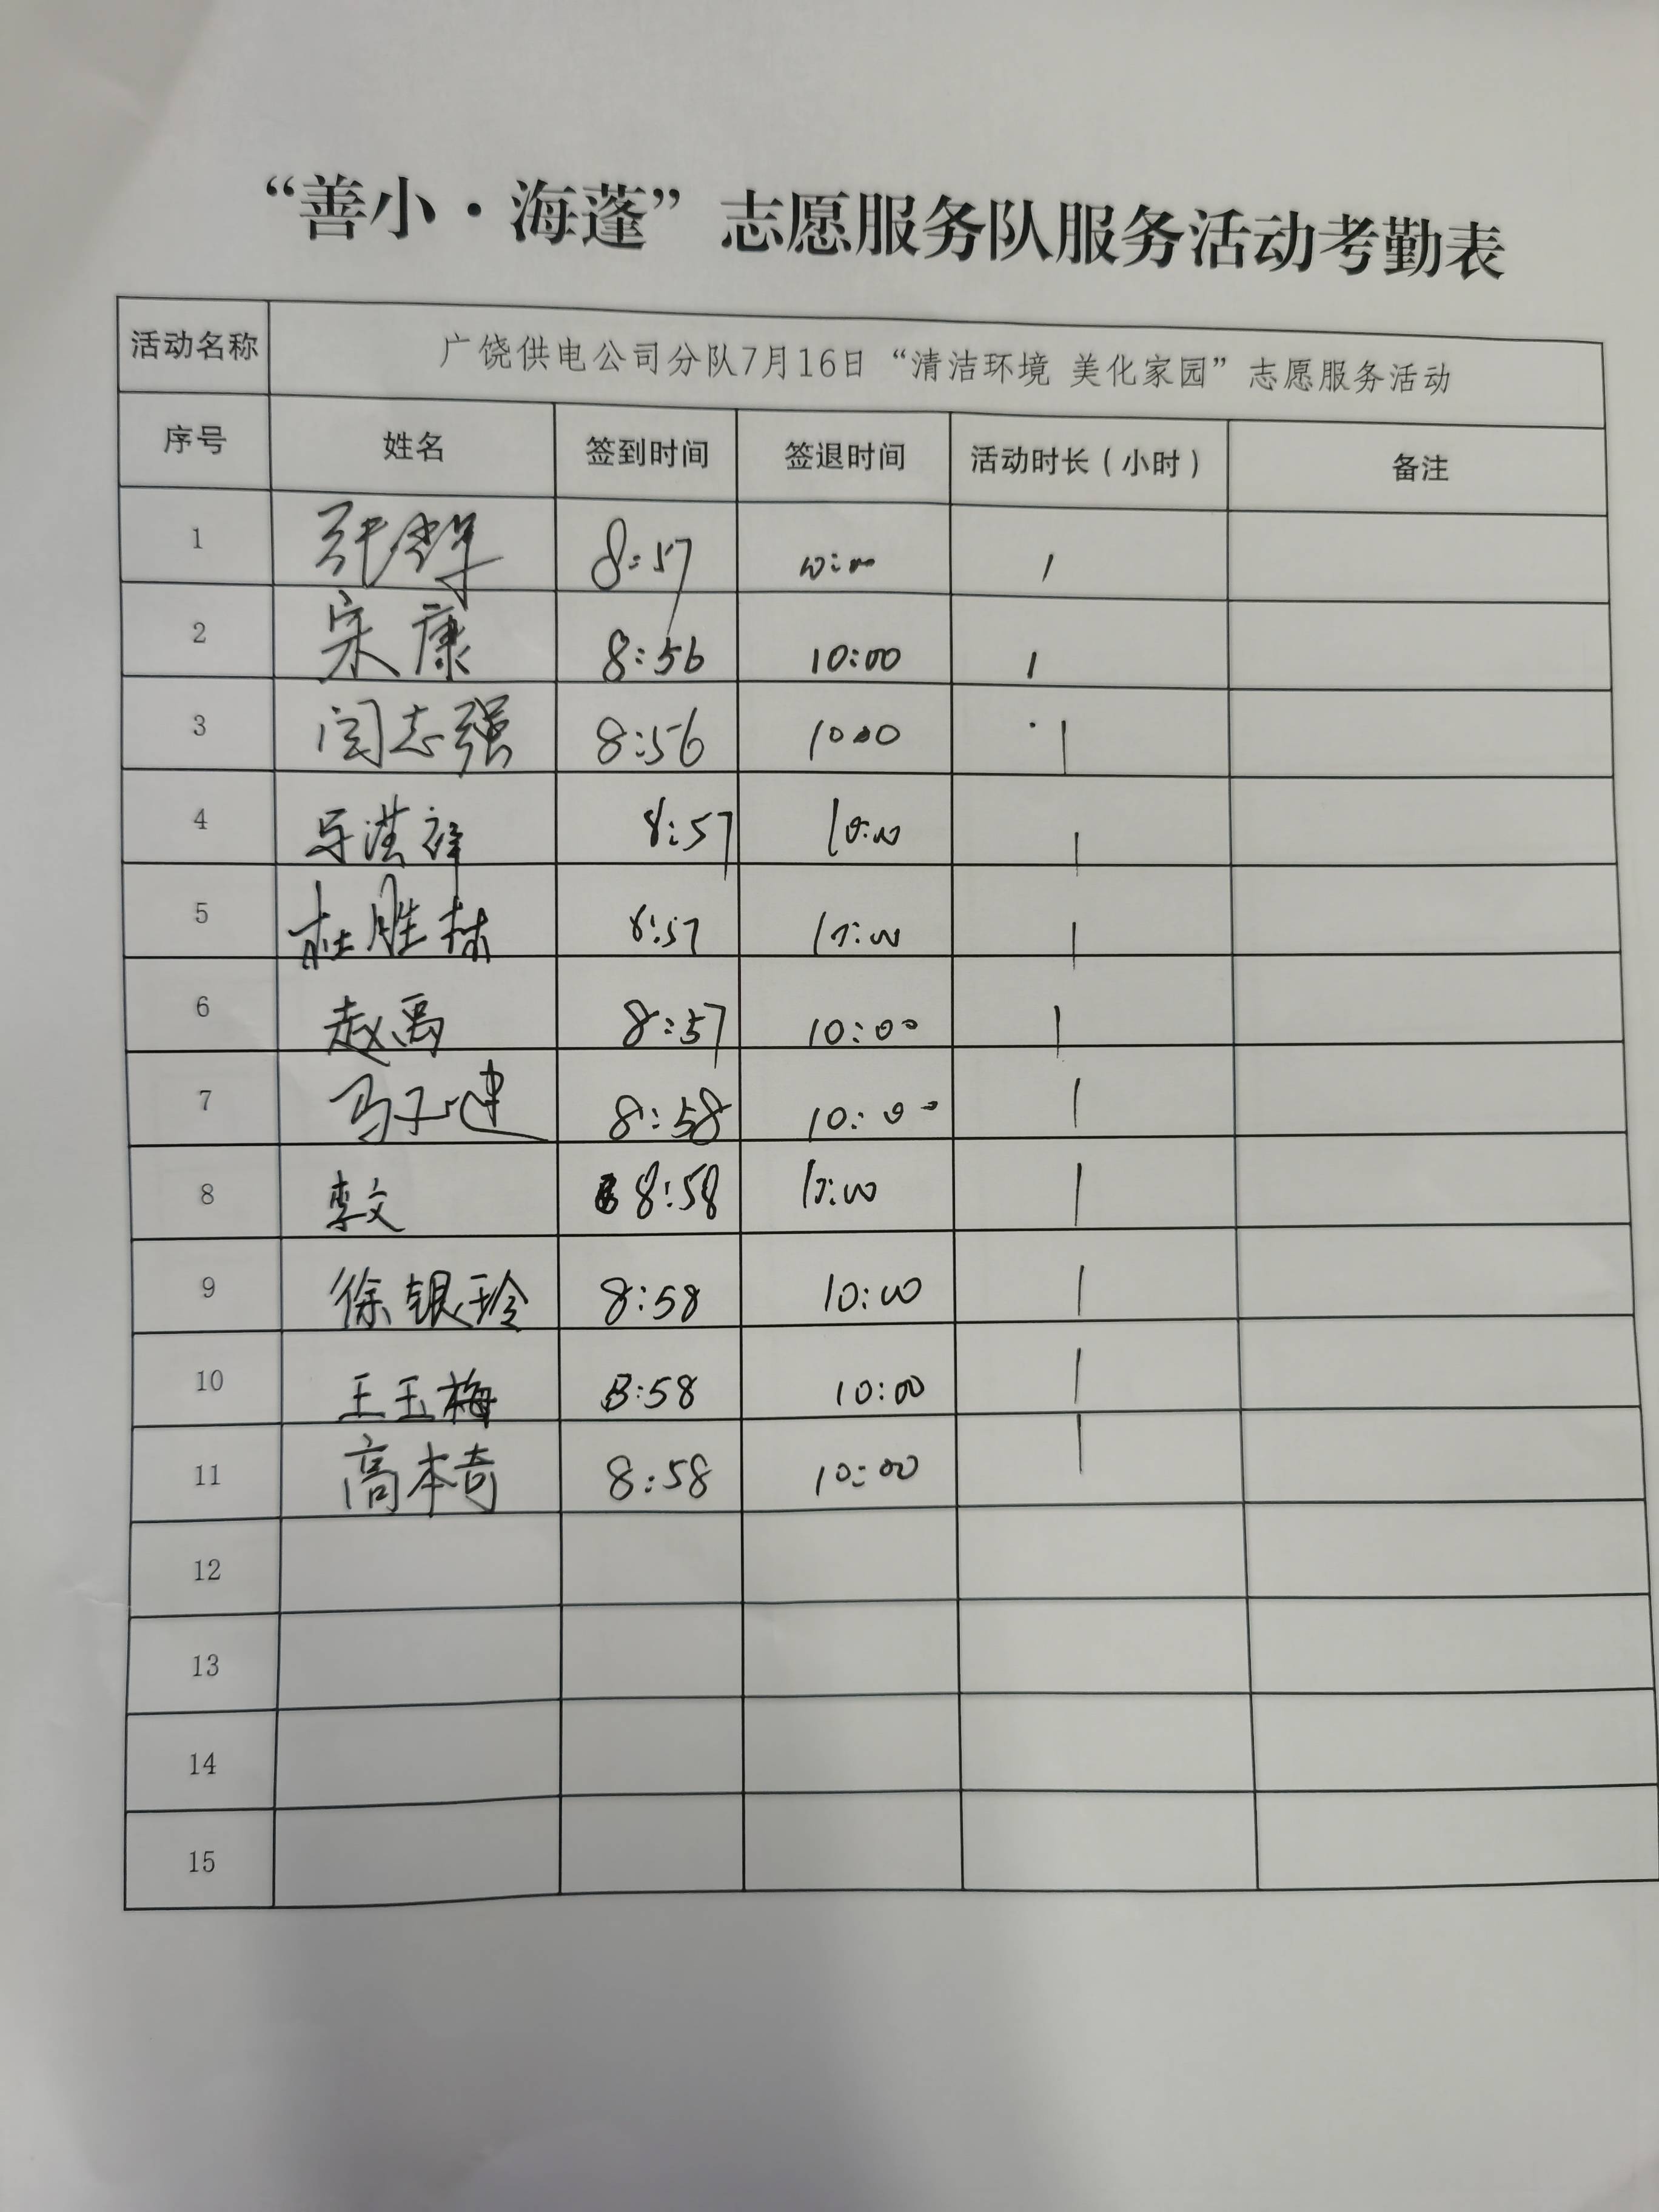 “善小·海蓬”志愿服务队服务活动考勤表
活动名称 广饶供电公司分队7月16日“清洁环境 美化家园”志愿服务活动
序号 姓名 签到时间 签退时间 活动时长(小时) 备注
1 8:57 10:00 1
2 宋康 8:56 10:00 1
3 闫志强 8:56 10:00 1
4 8:57 10:00 1
5 杜胜林 8:57 10:00 1
6 赵禹 8:57 10:00 1
7 马子建 8:58 10:00 1
8 李文 8:58 10:00 1
9 徐银玲 8:58 10:00 1
10 王玉梅 8:58 10:00 1
11 高本奇 8:58 10:00 1
12
13
14
15